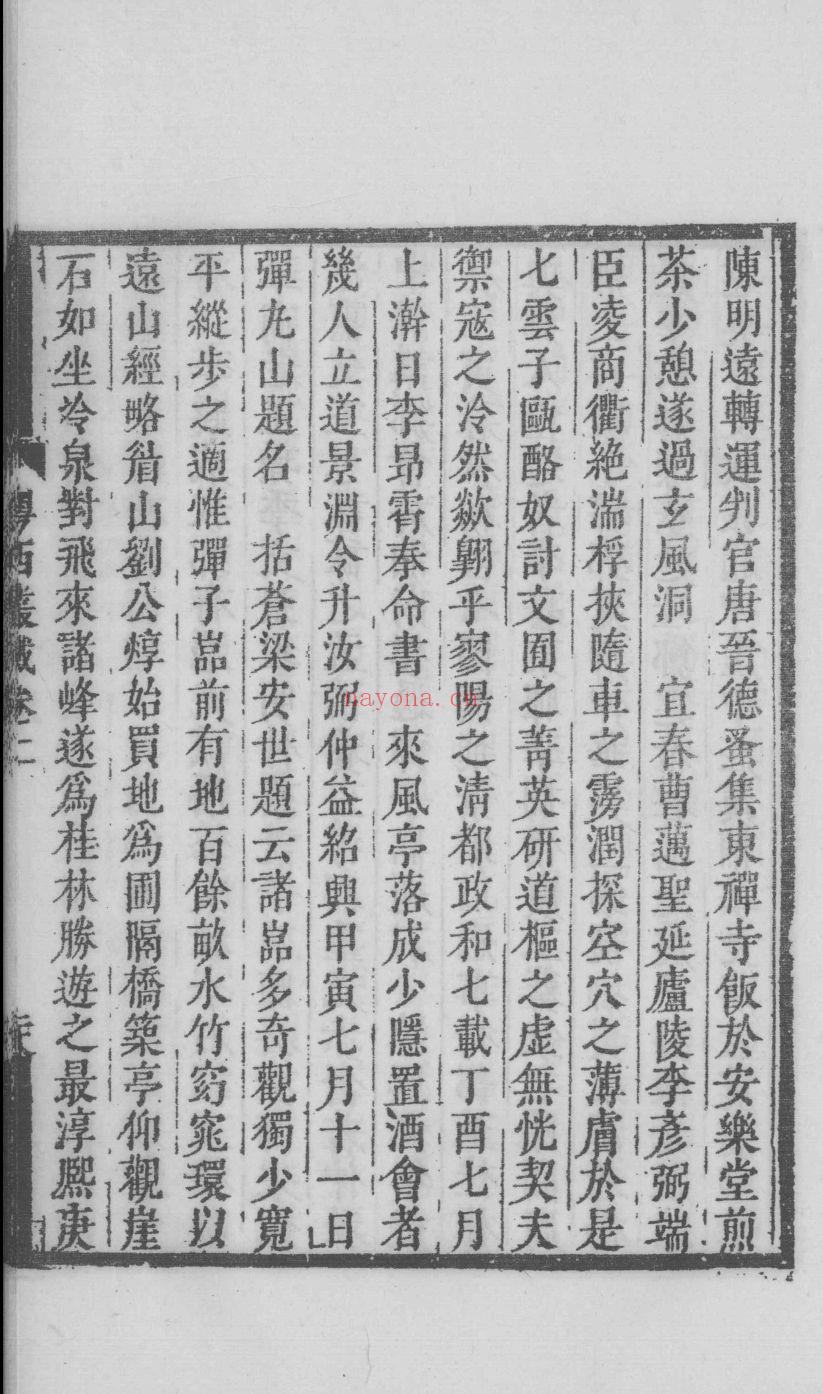 陳明遠轉運判官唐晉德蚤集東禪寺飯於安樂堂煎
茶少憩遂過玄風洞　宜春曹邁聖延廬陵李彥弼端
臣凌商衢絶湍桴挾隨車之霶潤探空穴之薄膚於是
七雲子甌酪奴討文囿之菁英研道樞之虛無恍契夫
禦寇之泠然歘翺乎寥陽之淸都政和七載丁酉七月
上澣日李昂霄奉命書　來風亭落成少隱置酒會者
幾人立道景淵令升汝弼仲益紹興甲寅七月十一日
彈丸山題名　括蒼梁安世題云諸嵓多奇觀獨少寬
平縱步之適惟彈子嵓前有地百餘畝水竹窈窕環以
遠山經略眉山劉公焞始買地爲圃隔橋築亭仰觀崖
石如坐冷泉對飛來諸峰遂爲桂林勝遊之最淳熙庚
粵西叢載卷二
nayona.cn